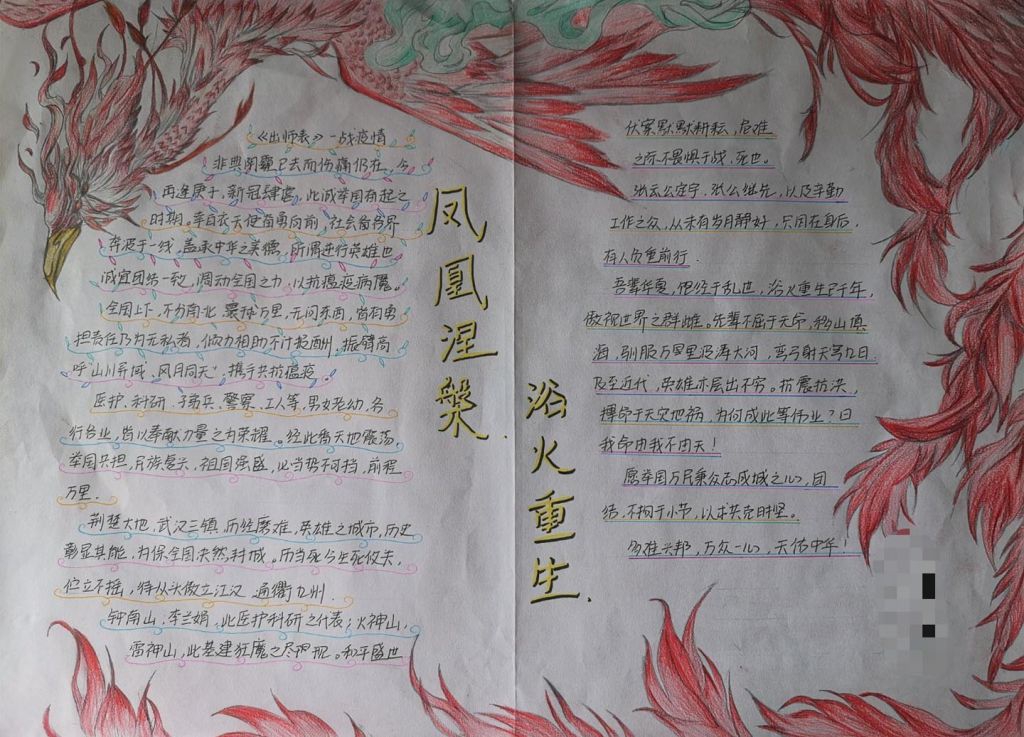 《出师表》一战疫情
非典阴霾已去而伤痛仍在，今
再逢庚子，新冠肆虐，此诚举国奋起之
时期。幸白衣天使奋勇向前，社会各界
奔波于一线，盖承中华之美德，所谓逆行英雄也
诚宜团结一致，调动全国之力，以抗瘟疫病魔。
全国上下，不分南北，裹挟万里，无问东西，皆有勇
担责任乃为无私者，倾力相助不计报酬，振臂高
呼“山川异域，风月同天”，携手共抗瘟疫。
医护、科研、子弟兵、警察、工人等，男女老幼，各
行各业，皆以奉献力量之为荣耀。经此番天地震荡
举国共担，民族复兴，祖国强盛，必当势不可挡，前程
万里.
荆楚大地，武汉三镇，历经磨难，英雄之城市，历史
彰显其能，为保全国决然封城。历当死与生死攸关，
伫立不摇，特从头傲立江汉，通衢九州.
钟南山、李兰娟，此医护科研之代表；火神山，
雷神山，此基建狂魔之尽阴现。和平盛世
凤凰涅槃.
浴火重生.
伏案默默耕耘，危难
之际不畏惧于战，死也。
张云公定宇，张公继先，以及辛勤
工作之众，从未有岁月静好，只因在身后，
有人负重前行.
吾辈华夏，但经于乱世，浴火重生已千年，
傲视世界之群雌。先辈不屈于天宇，移山填
海，驯服万里里波涛大河，弯弓射天写九日.
及至近代，英雄亦层出不穷。抗震抗洪，
搏命于天灾地祸，为何成此等伟业？曰
我命由我不由天！
愿举国万民秉众志成城之心，团
结，不拘于小节，以求共克时坚。
多难兴邦，万众一心，天佑中华！